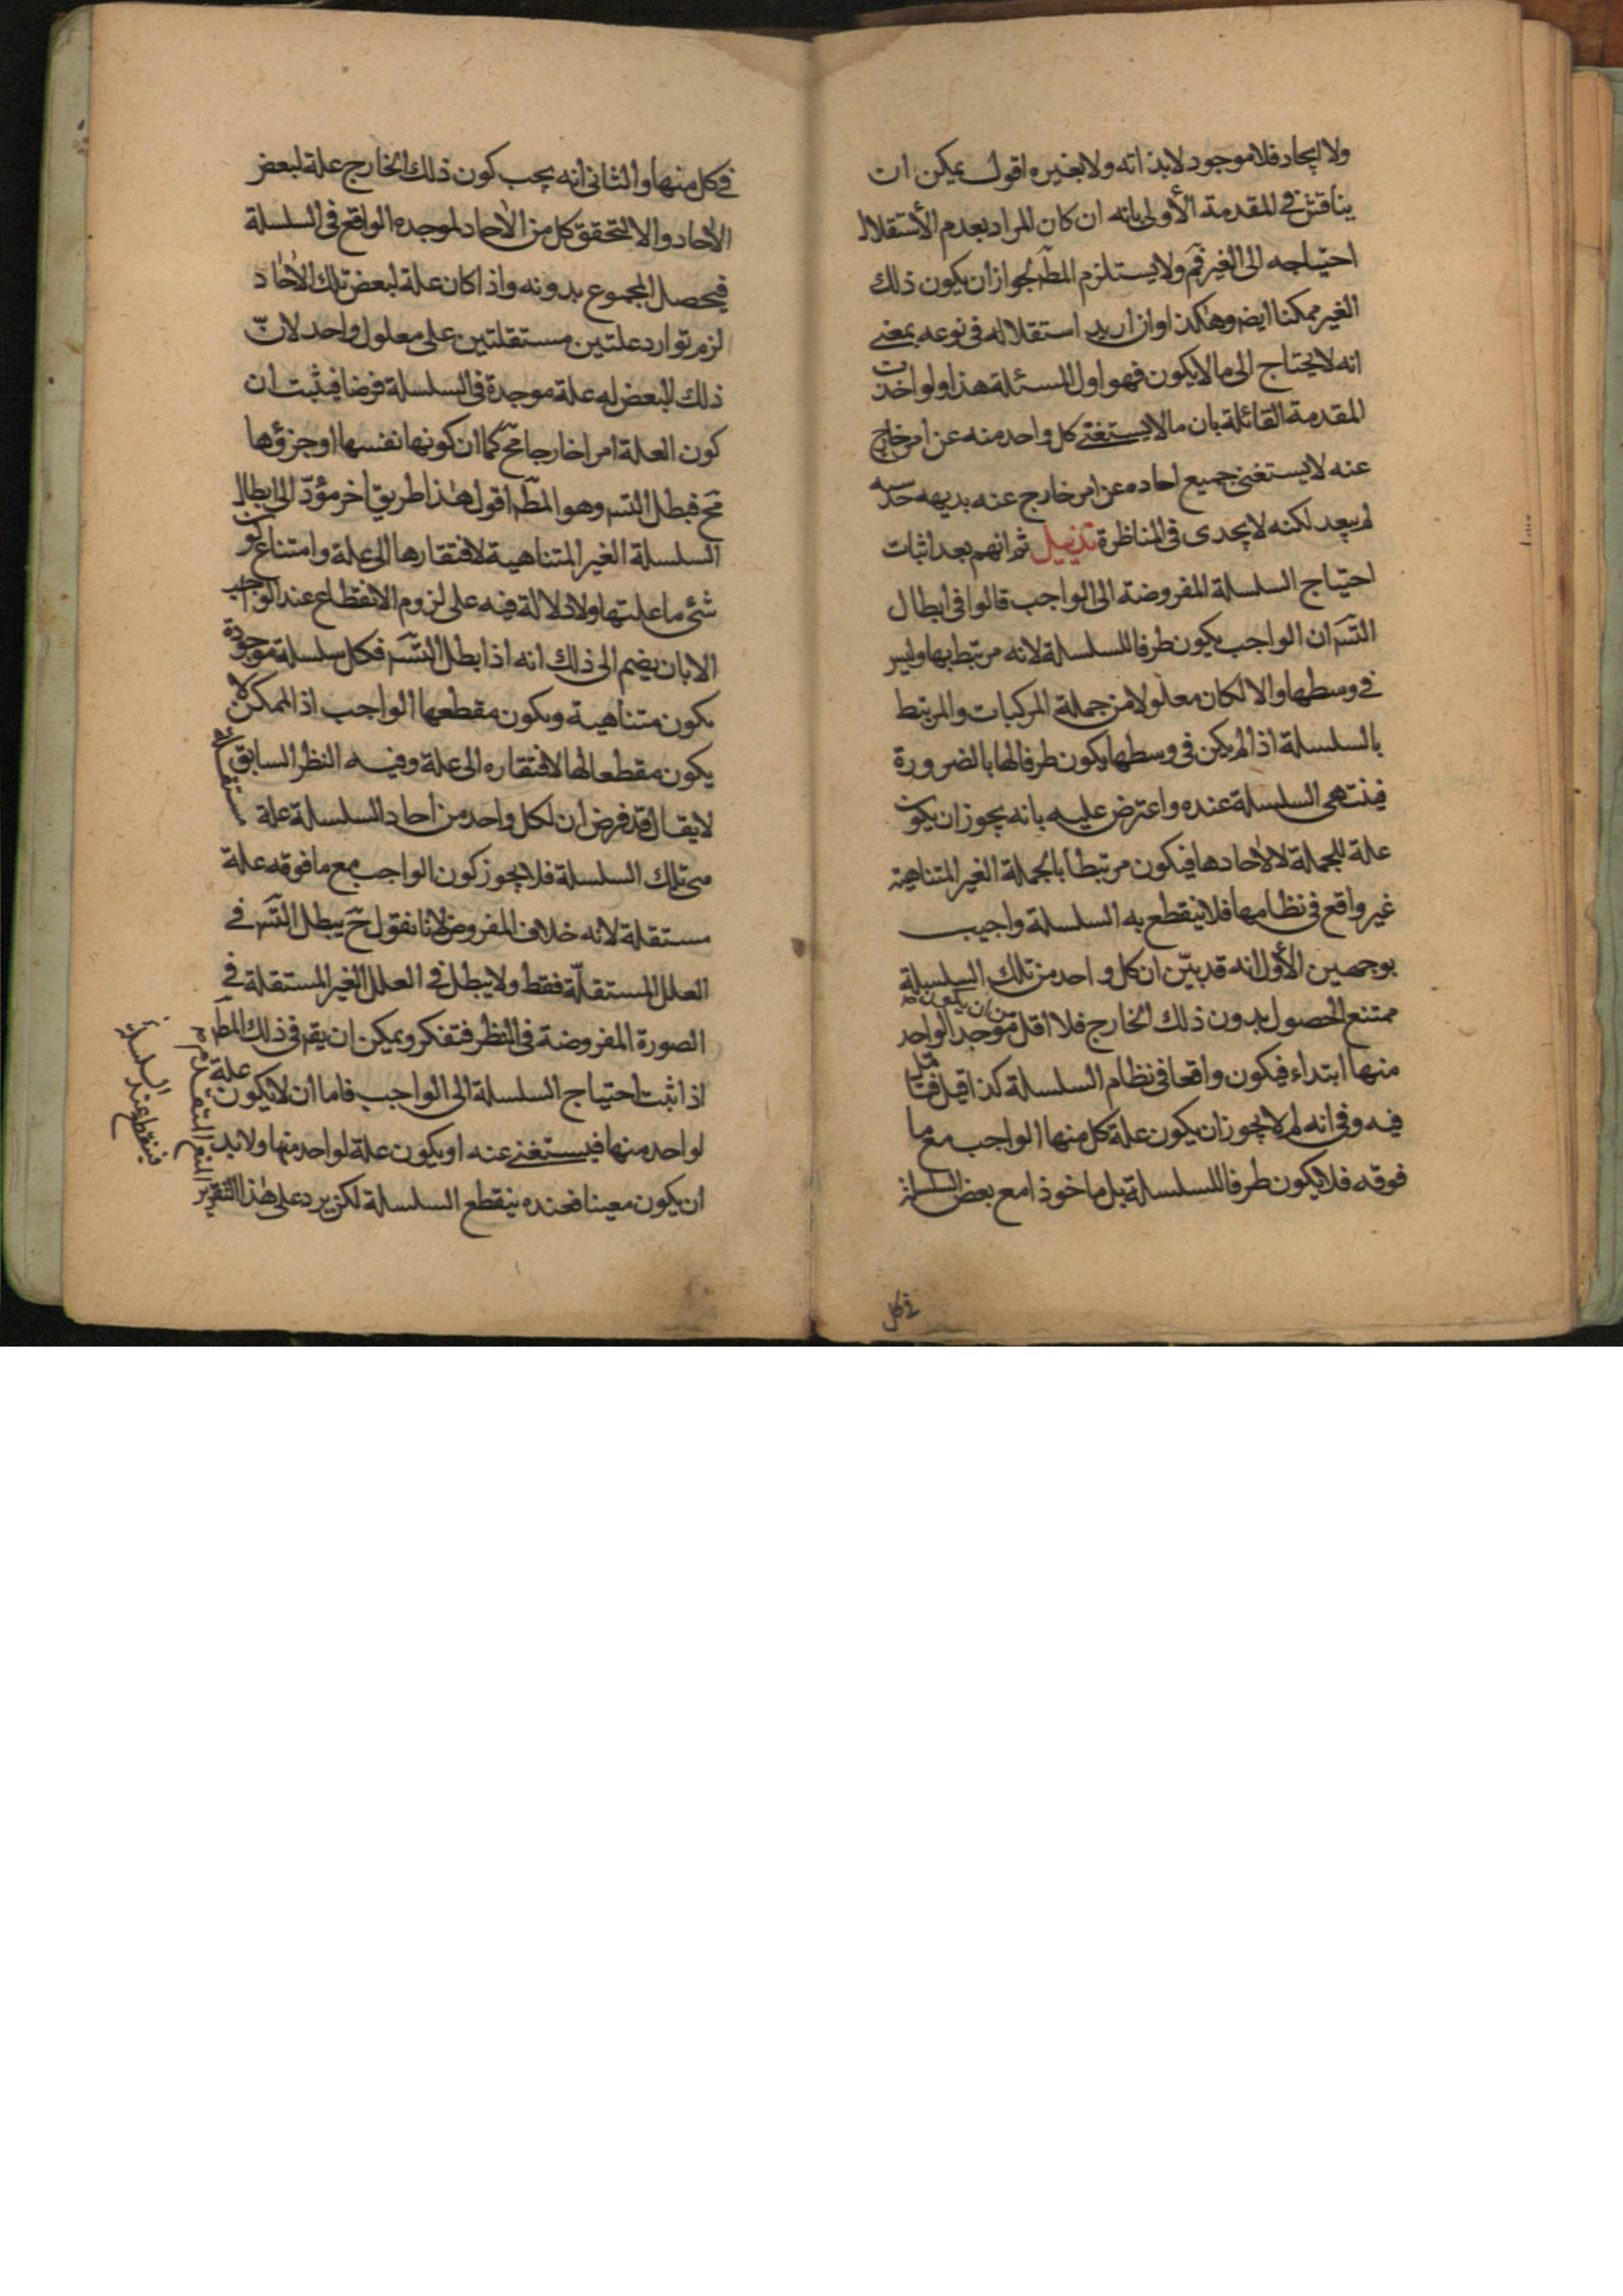 ولا ايجاد فلا موجود لا بذاته ولا بغيره اقول يمكن ان
يناقش في المقدمة الأولى بانه ان كان المراد بعدم الأستقلال
احتياجه الى الغير فمّ ولا يستلزم المطّ لجواز ان يكون ذلك
الغير ممكنا ايضه وهكذا وان اريد استقلاله في نوعه بمعنى
انه لا يحتاج الى ما لا يكون فهو اول المسئلة هذا ولو اخذت
المقدمة القائلة بان ما لا يستغنى كل واحد منه عن امر خارج
عنه لا يستغنى جميع احاده عن امر خارج عنه بديهه حدسه
لم يبعد لكنه لا يجدى في المناظرة تذييل ثم انهم بعد اثبات
احتياج السلسلة المفروضة الى الواجب قالوا في ابطال
التسّ ان الواجب يكون طرفا للسلسلة لانه مرتبط بها وليس
في وسطها والا لكان معلولا من جملة المركبات والمرتبط
بالسلسلة اذا لم يكن في وسطها يكون طرفا لها بالضرورة
فينتهى السلسلة عنده واعترض عليه بانه يجوز ان يكون
علة للجملة لا لاحادها فيكون مرتبطا بالجملة الغير المتناهية
غير واقع في نظامها فلا ينقطع به السلسلة واجيب
بوجهين الأول انه قد بيّن ان كل واحد من تلك السلسلة
ممتنع الحصول بدون ذلك الخارج فلا اقل من ان يكون موجد الواحد
منها ابتداء فيكون واقعا في نظام السلسلة كذا قيل فتامل
فيه وفي انه لم لا يجوز ان يكون علة كل منها الواجب مع ما
فوقه فلا يكون طرفا للسلسلة بل ماخوذا مع بعض السلسلة
في كل
في كل منها والثاني انه يجب كون ذلك الخارج علة لبعض
الاحاد والا لتحقق كل من الاحاد لموجده الواقع في السلسلة
فيحصل المجموع بدونه واذا كان علة لبعض تلك الاحاد
لزم توارد علتين مستقلتين على معلول واحد لانّ
ذلك البعض له علة موجدة في السلسلة فرضا فيثبت ان
كون العلة امرا خارجا مح كما ان كونها نفسها او جزؤها
مح فبطل التسّ وهو المطّ اقول هذا طريق اخر مؤدّ الى ابطال
السلسلة الغير المتناهية لافتقارها الى علة وامتناع كون
شئ ما علتها ولا دلالة فيه على لزوم الانقطاع عند الواجب
الا بان يضم الى ذلك انه اذا بطل التسّ فكل سلسلة موجودة
يكون متناهية ويكون مقطعها الواجب اذ الممكن لا
يكون مقطعا لها لافتقاره الى علة وفيه النظر السابق
لا يقال قد فرض ان لكل واحد من احاد السلسلة علة مستقلة
في تلك السلسلة فلا يجوز كون الواجب مع ما فوقه علة
مستقلة لانه خلاف المفروض لانا نقول ح يبطل التسّ في
العلل المستقلّة فقط ولا يبطل في العلل الغير المستقلة في
الصورة المفروضة في النظر فتفكر ويمكن ان يقم في ذلك المطّ
اذا ثبت احتياج السلسلة الى الواجب فاما ان لا يكون علة
لواحد منها فيستغنى عنه او يكون علة لواحد منها ولا بد
ان يكون معينا فعنده ينقطع السلسلة لكن يرد على هذا التقرير
فينقطع عند السلسلة